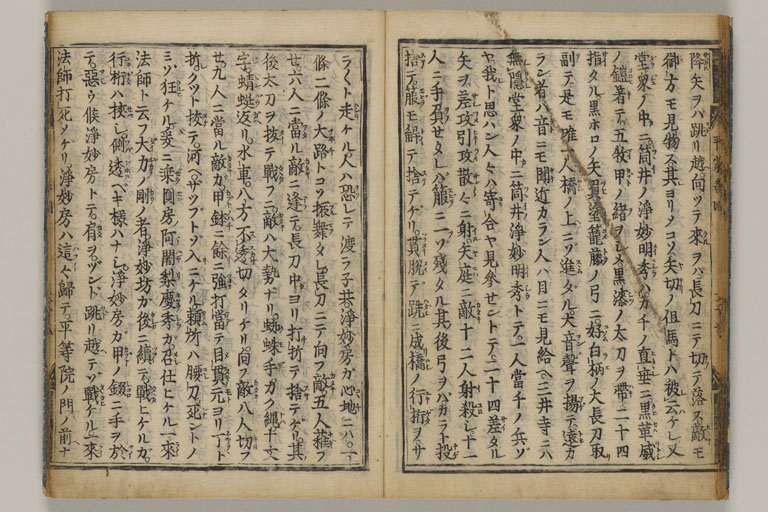 降矢ヲハ跳リ越向ツテ來ヲハ長刀ニテ切テ落ス敵モ
御方モ見物ス其ヨリノコソ矢切ノ但馬トハ被云ケレ又
堂衆ノ中ニ筒井ノ淨妙明秀ハカチノ直垂ニ黒革威
ノ鎧着テ五枚甲ノ緒ヲシメ黒漆ノ太刀ヲ帯二十四
指タル黒ホロノ矢負塗籠藤ノ弓ニ好白柄ノ大長刀取
副テ是モ唯一人橋ノ上ニソ進タル大音聲ヲ揚テ遠カ
ラン者ハ音ニモ聞近カラン人ハ目ニモ見給ヘ三井寺ニハ
無隱堂衆ノ中ニ筒井淨妙明秀トテ一人當千ノ兵ソ
ヤ我ト思ハン人々ハ寄合ヤ見參セントテ二十四差タル
矢ヲ差攻引攻散々ニ射矢庭ニ敵十二人射殺シ十一
人ニ手負セタレハ箙ニ一ツ殘タル其後弓ヲハカラト投
捨テ箙モ解テ捨テケリ貫脱テ跣ニ成橋ノ行桁ヲサ
ラ〳〵ト走ケル人ハ恐レテ渡ラ子共淨妙房カ心地ニハ一
條二條ノ大路トコソ振舞タレ長刀ニテ向フ敵五人薙フ
セ六人ニ當ル敵ニ逢テ長刀中ヨリ打折テ捨テケリ其
後太刀ヲ抜テ戰フニ敵ハ大勢ナリ蜘蛛手カク縄十文
字蜻蜓返リ水車八方不透切タリケリ向フ敵八人切フ
セ九人ニ當ル敵カ甲ノ鉢ニ餘ニ強打當テ目貫ノ元ヨリ丁ト
折クツト抜テ河ヘサツフトソ入ニケル頼所ハ腰刀死ントノ
ミソ狂ケル爰ニ乗圓房阿闍梨慶秀カ召仕ヒケル一來
法師ト云フ大力ノ剛ノ者淨妙坊カ後ニ續テ戰ヒケルカ
行桁ハ狭シ側透ヘキ樣ハナシ淨妙房カ甲ノ錣ニ手ヲ於
テ惡ウ候淨妙房トテ肩ヲツント跳リ越テソ戰ケル一來
法師打死ノケリ淨妙房ハ這々歸テ平等院ノ門ノ前ナ